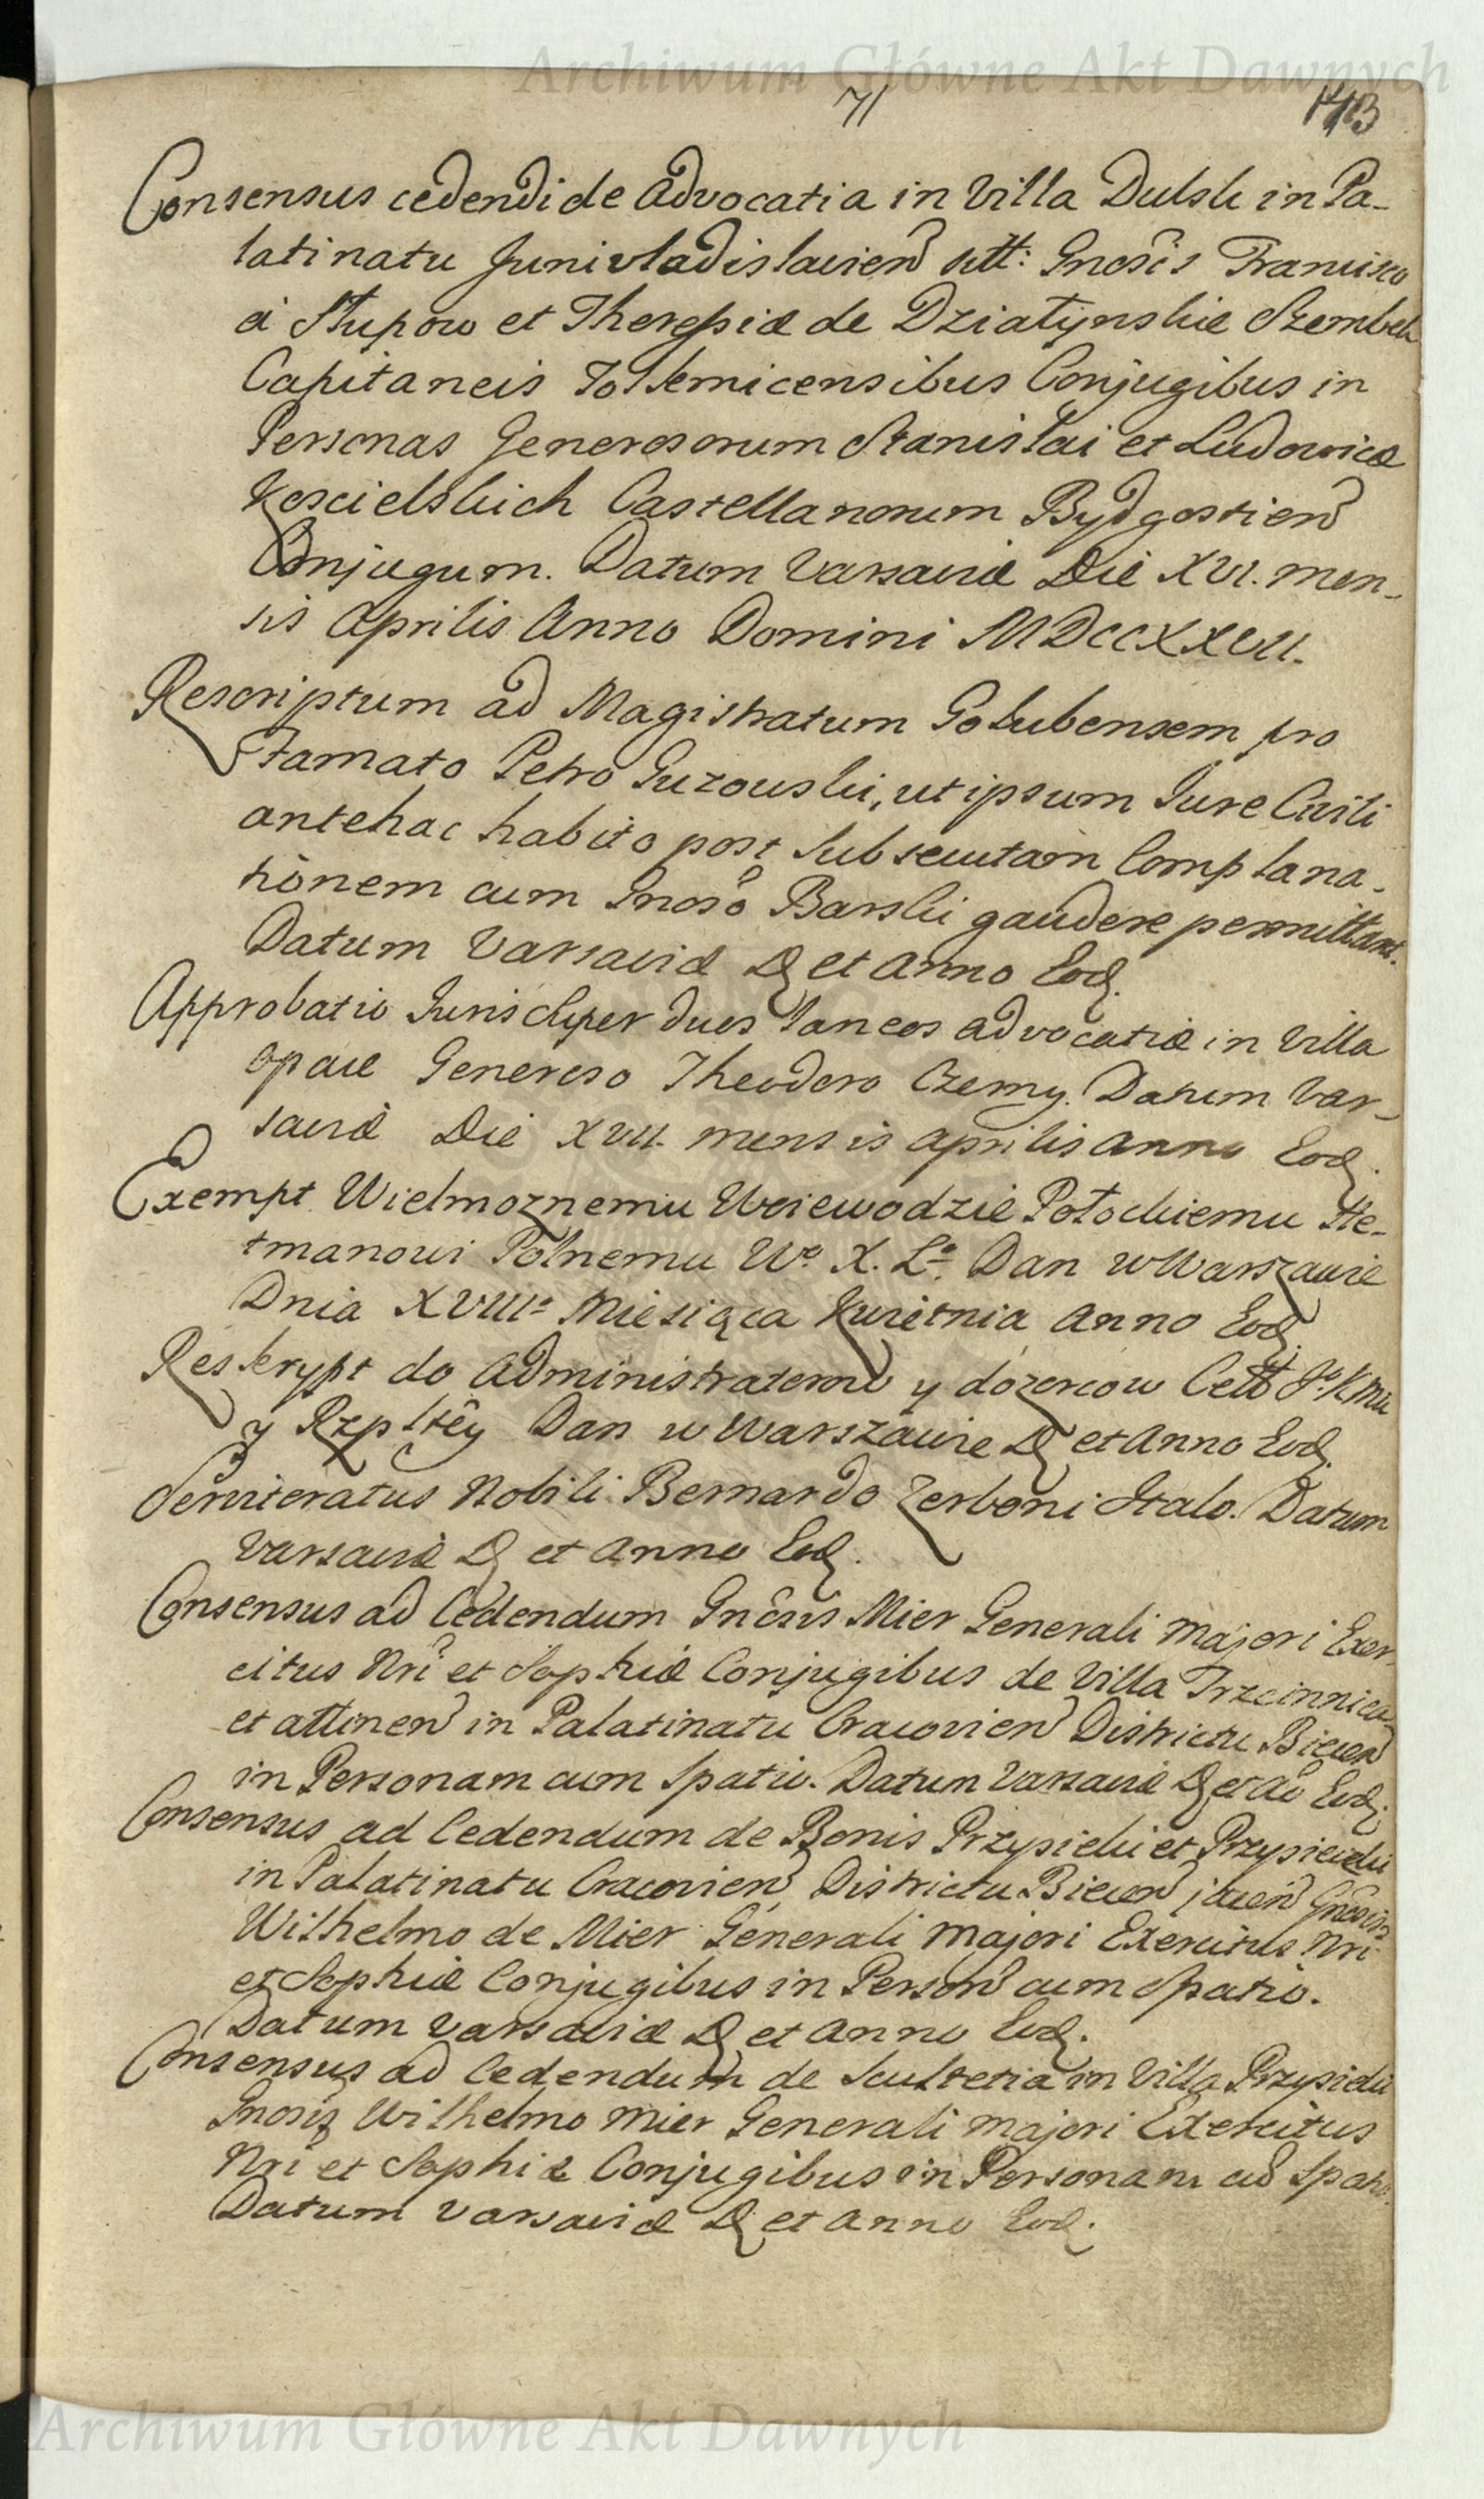 Archiwum Główne Akt Dawnych
71
143
Consensus cedendi de Advocatia in Villa Dulsk in Pa-
latinatu Junivladislavien sitt: Gnosis Francisco
à Słupow et Theressiæ de Działynskie Szembek
Capitaneis Tolkemicensibus Conjugibus in
Personas Generosorum Stanislai et Ludovicæ
Koscielskich Castellanorum Bydgostien
Conjugum. Datum Varsaviæ Die XVI. men-
sis Aprilis Anno Domini MDCCXXVII.
Rescriptum ad Magistratum Golubensem pro
Famato Petro Guzouski, ut ipsum Jure Civili
antehac habito post subsecutam Complana-
tionem cum Gnoso Barski gaudere permittant.
Datum Varsaviæ D et Anno Eod.
Approbatio Juris super duos laneos advocatiæ in Villa
Opaie Generoso Theodoro Czerny. Datum Var-
saviæ Die XVII. mensis Aprilis Anno Eod.
Exempt Wielmoznemu Woiewodzie Potockiemu He-
tmanowi Polnemu Wo. X. Lo. Dan w Warszawie
Dnia XVIIIo Miesiąca Kwietnia Anno Eod.
Reskrypt do Administratorow y dozorcow Cell Jo. K Mci
y Rzpltey Dan w Warszawie D et Anno Eod.
Serviteratus Nobili Bernardo Zerboni Italo. Datum
Varsaviæ D et Anno Eod.
Consensus ad Cedendum Gnosis Mier Generali Majori Exer-
citus Nri et Sophiæ Conjugibus de Villa Trzcinnica
et attinen in Palatinatu Cracovien Districtu Biecen
in Personam cum Spatio. Datum Varsaviæ D et Ao Eod.
Consensus ad Cedendum de Bonis Przysieki et Przysieczki
in Palatinatu Cracovien Districtu Biecen jacen Gnosis
Wilhelmo de Mier Generali Majori Exercitus Nri
et Sophiæ Conjugibus in Person cum Spatio.
Datum Varsaviæ D et Anno Eod.
Consensus ad Cedendum de Scultetia in Villa Przysieki
Gnosis Wilhelmo Mier Generali Majori Exercitus
Nri et Sophiæ Conjugibus in Personam cu Spatio.
Datum Varsaviæ D et Anno Eod.
Archiwum Główne Akt Dawnych